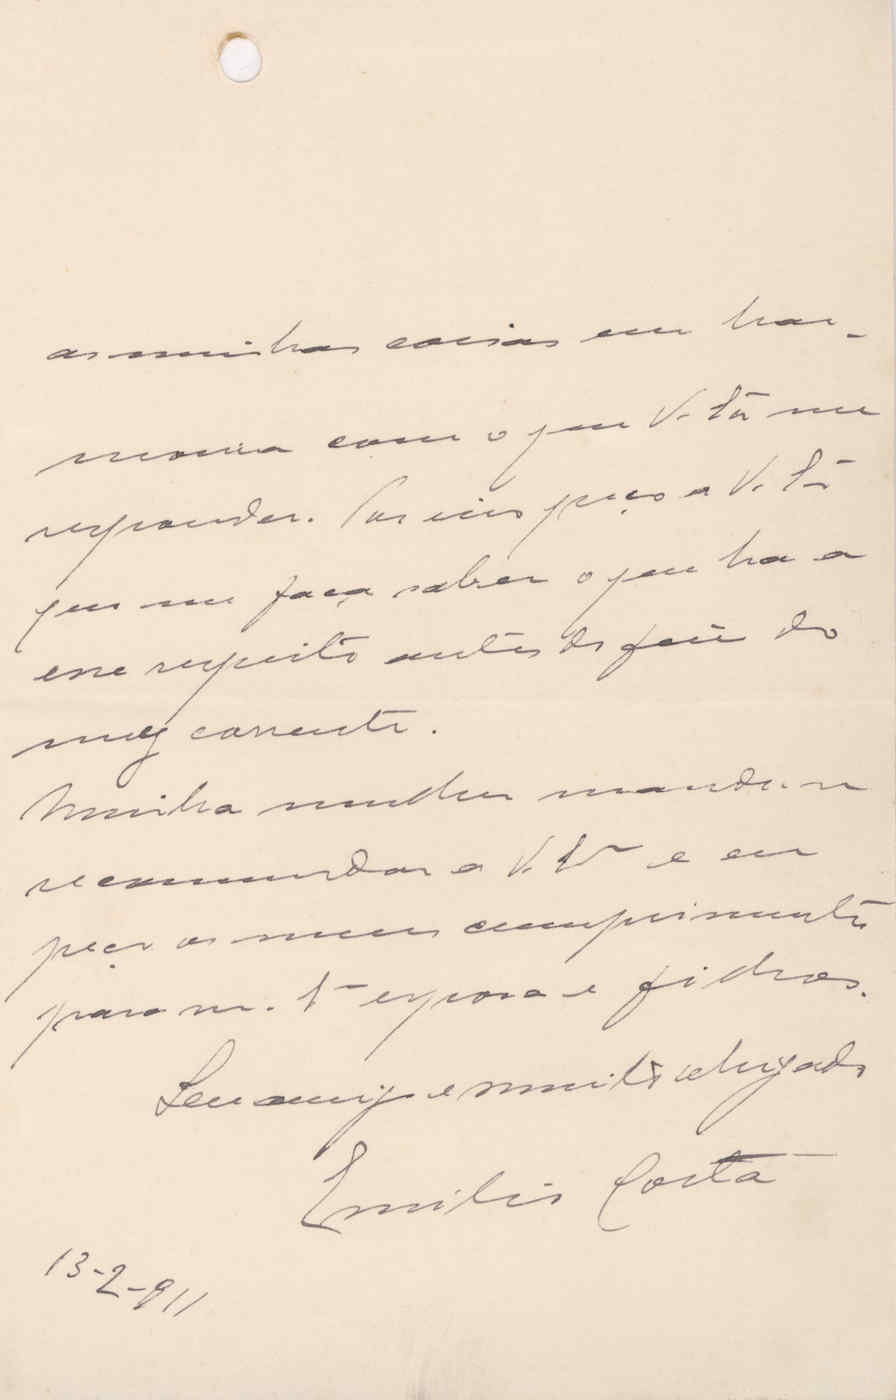 as minhas coisas em har-
monia com o que V. Ex.ª me
responder. Por isso peço a V. Ex.ª
que me faça saber o que ha a
esse respeito antes do fim do
mez corrente.
Minha mulher manda-se
recommendar a V. Ex.ª e eu
peço os meus cumprimentos
para m. Ex.ª esposa e filhos.
Seu amigo e muito obrigado
Emilio Costa
13-2-911